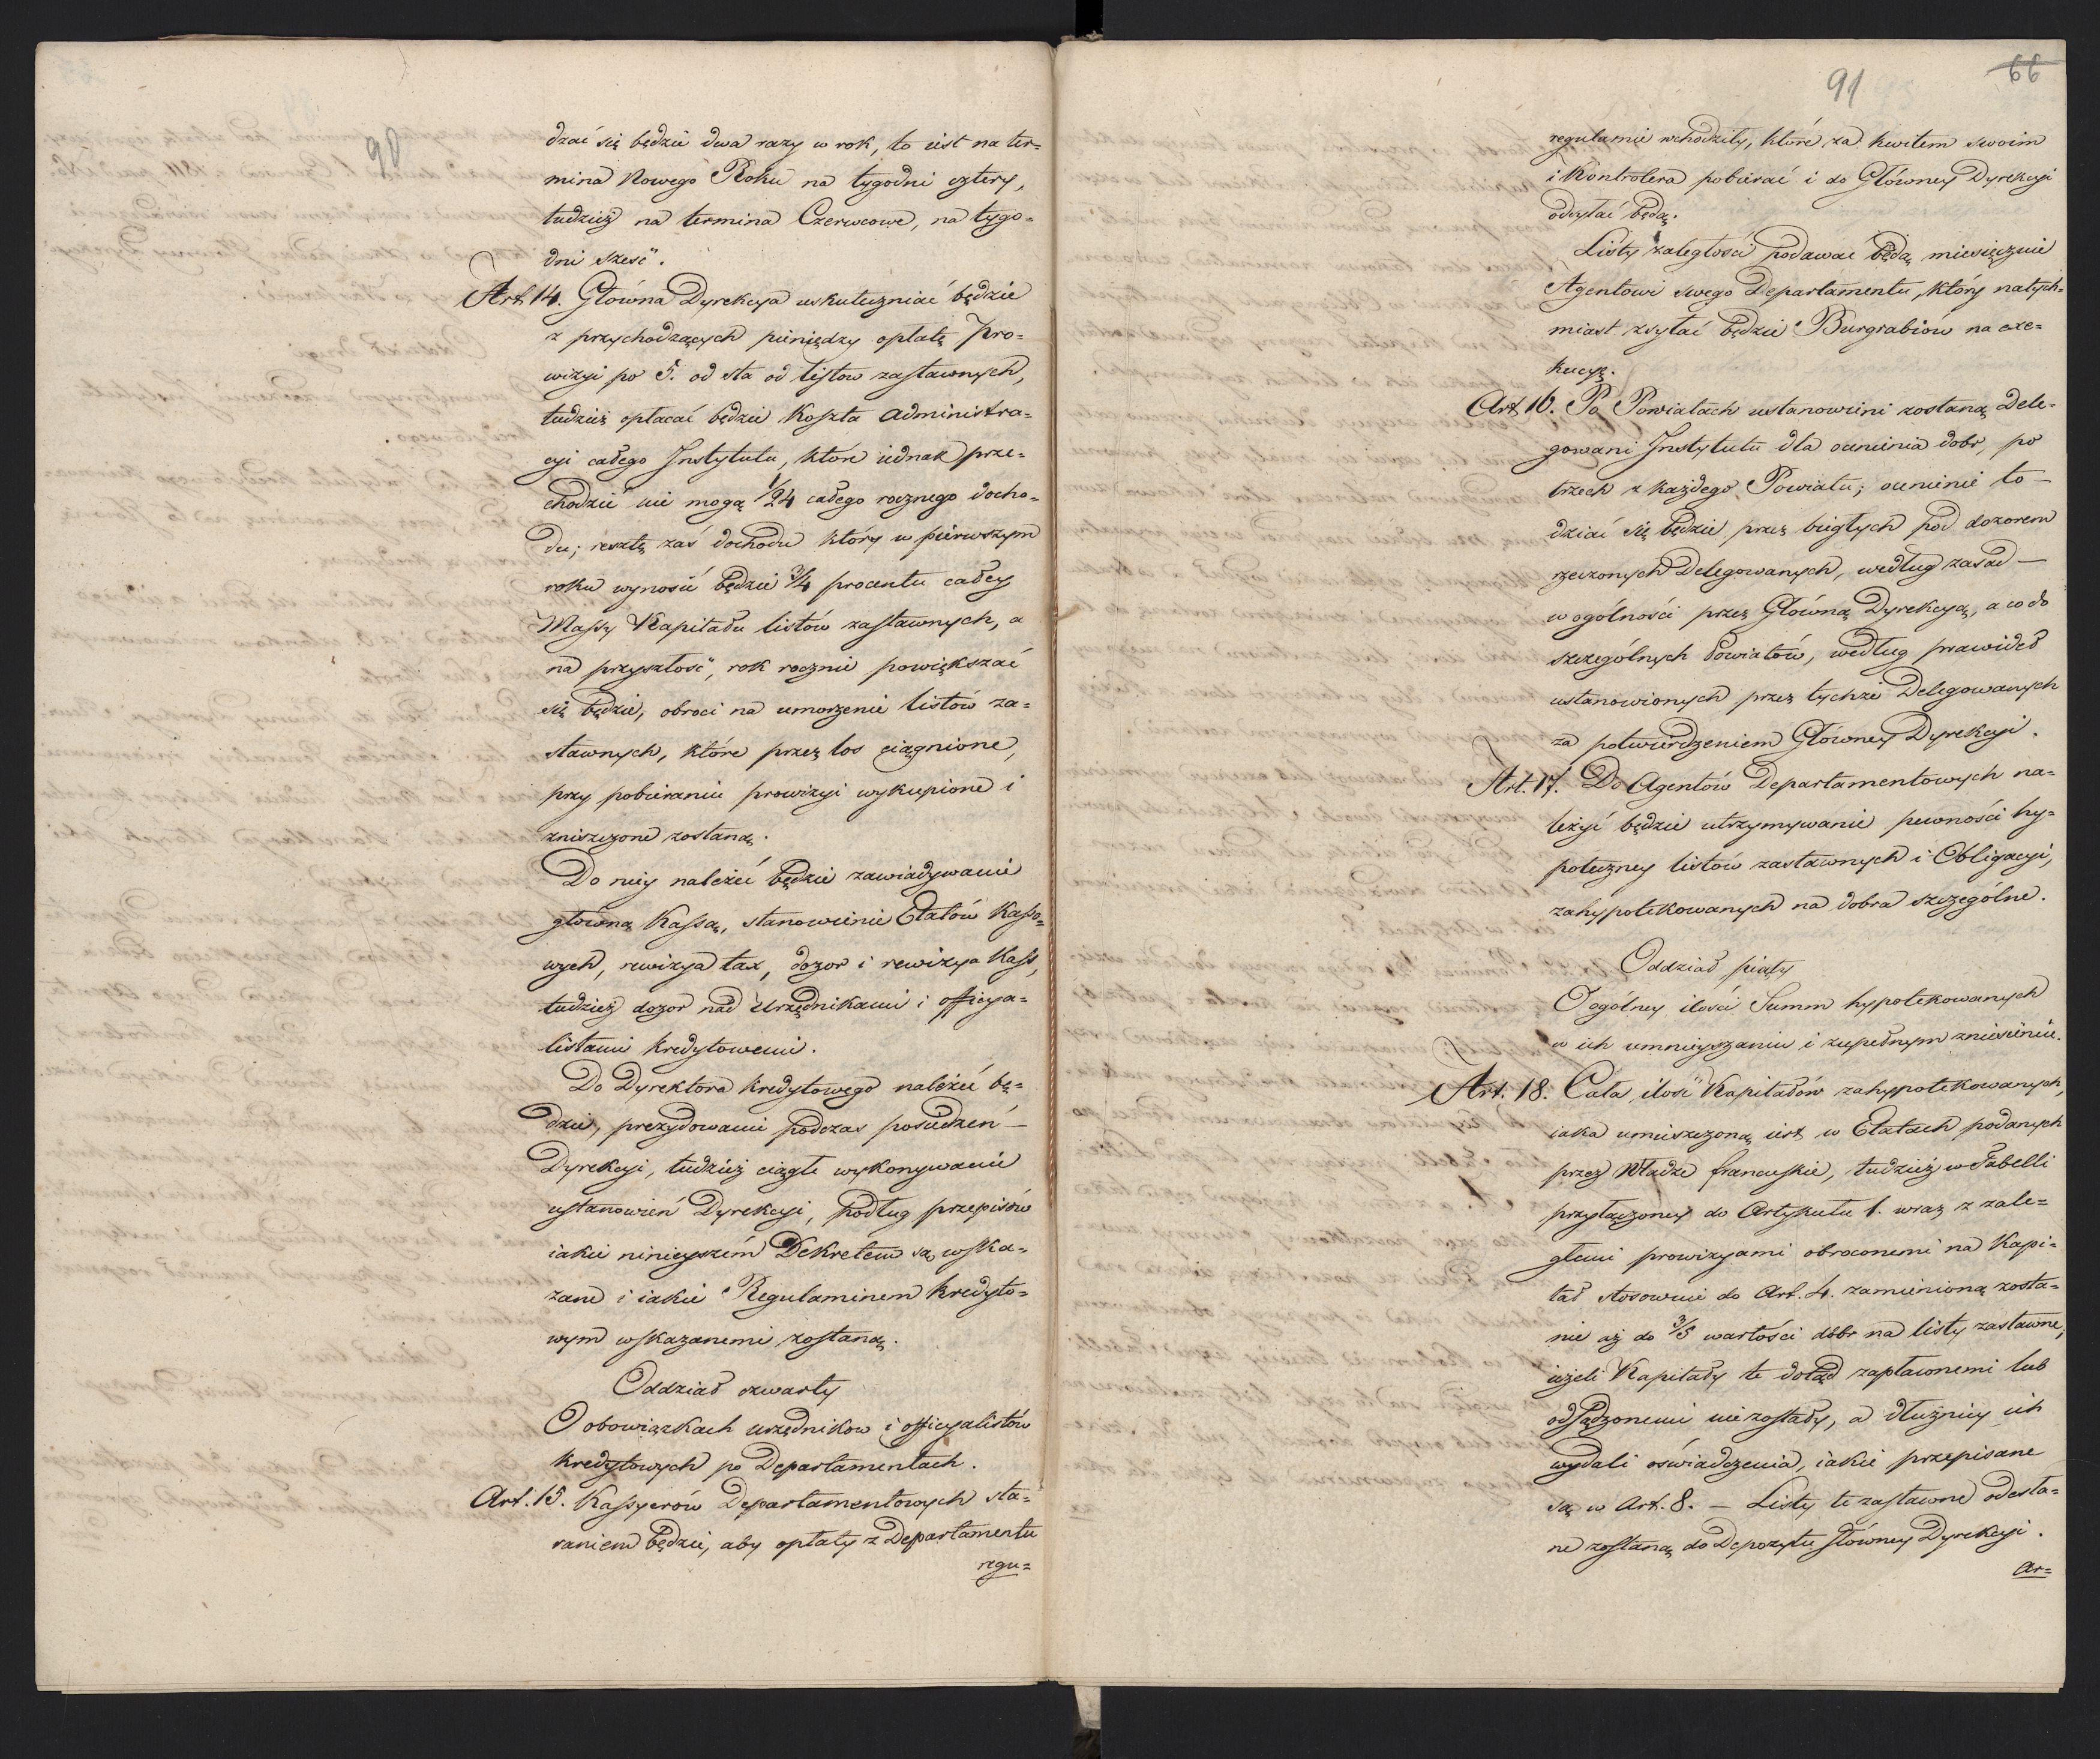 90
dzać się będzie dwa razy w rok, to iest na ter=
mina Nowego Roku na tygodni cztery,
tudzież na termina Czerwcowe, na tygo=
dni sześć.
Art 14. Główna Dyrekcya uskuteczniać będzie
z przychodzących pieniędzy opłatę Pro=
wizyi po 5. od sta od listow zastawnych,
tudzież opłacać będzie Koszta administra=
cyi całego Instytutu, które iednak prze=
chodzić nie mogą 1/24 całego rocznego docho=
du; resztę zaś dochodu który w pierwszym
roku wynosić będzie 3/4 procentu całey
Massy Kapitału listów zastawnych, a
na przyszłość, rok rocznie powiększać
się będzie, obroci na umorzenie listów za=
stawnych, które przez los ciągnione,
przy pobieraniu prowizyi wykupione i
zniszczone zostaną.
Do niey należeć będzie zawiadywanie
główną Kassą, stanowienie Etatów Kasso=
wych, rewizya tax, dozor i rewizya Kass,
tudzież dozor nad Urzędnikami i officya=
listami kredytowemi.
Do Dyrektora kredytowego należeć bę=
dzie, prezydowanie podczas posiedzeń —
Dyrekcyi, tudzież ciągłe wykonywanie
ustanowień Dyrekcyi, podług przepisów
iakie ninieyszém Dekretem są wska=
zane i iakie Regulaminem kredyto=
wym wskazanemi zostaną.
Oddział czwarty
O obowiązkach urzędnikow i officyalistów
kredytowych po Departamentach.
Art. 15. Kassyerów Departamentowych sta=
raniem będzie, aby opłaty z Departamentu
regu=
91
66
regularnie wchodziły, które za kwitem swoim
i Kontrolera pobierać i do Główney Dyrekcyi
odsyłać będą.
Listy zaległości podawać będą miesięcznie
Agentowi swego Departamentu, który natych=
miast zsyłać będzie Burgrabiów na exe=
kucyą.
Art 16. Po Powiatach ustanowieni zostaną Dele=
gowani Instytutu dla ocenienia dobr, po
trzech z każdego Powiatu; ocenienie to —
dziać się będzie przez biegłych pod dozorem
rzeczonych Delegowanych, według zasad —
w ogólności przez Główną Dyrekcyą, a co do
szczególnych Powiatów, według prawideł
ustanowionych przez tychże Delegowanych
za potwierdzeniem Główney Dyrekcyi.
Art. 17. Do Agentów Departamentowych na=
leżyć będzie utrzymywanie pewności hy=
poteczney listów zastawnych i Obligacyi,
zahypotekowanych na dobra szczególne.
Oddział piąty
O ogólney ilości Summ hypotekowanych
w ich umnieyszaniu i zupełnym zniesieniu.
Art. 18. Cała ilość Kapitałów zahypotekowanych,
iaka umieszczoną iest w Etatach podanych
przez Władze francuskie, tudzież w Tabelli
przyłączoney do Artykułu 1. wraz z zale=
głemi prowizyami obroconemi na Kapi=
tał stosownie do Art. 4. zamienioną zosta=
nie aż do 3/5 wartości dóbr na listy zastawne,
ieżeli Kapitały te dotąd zapłaconemi lub
odsądzonemi nie zostały, a dłużnicy ich
wydali oświadczenia, iakie przepisane
są w Art. 8. — Listy te zastawne odesła=
ne zostaną do Depozytu Główney Dyrekcyi.
Ar=